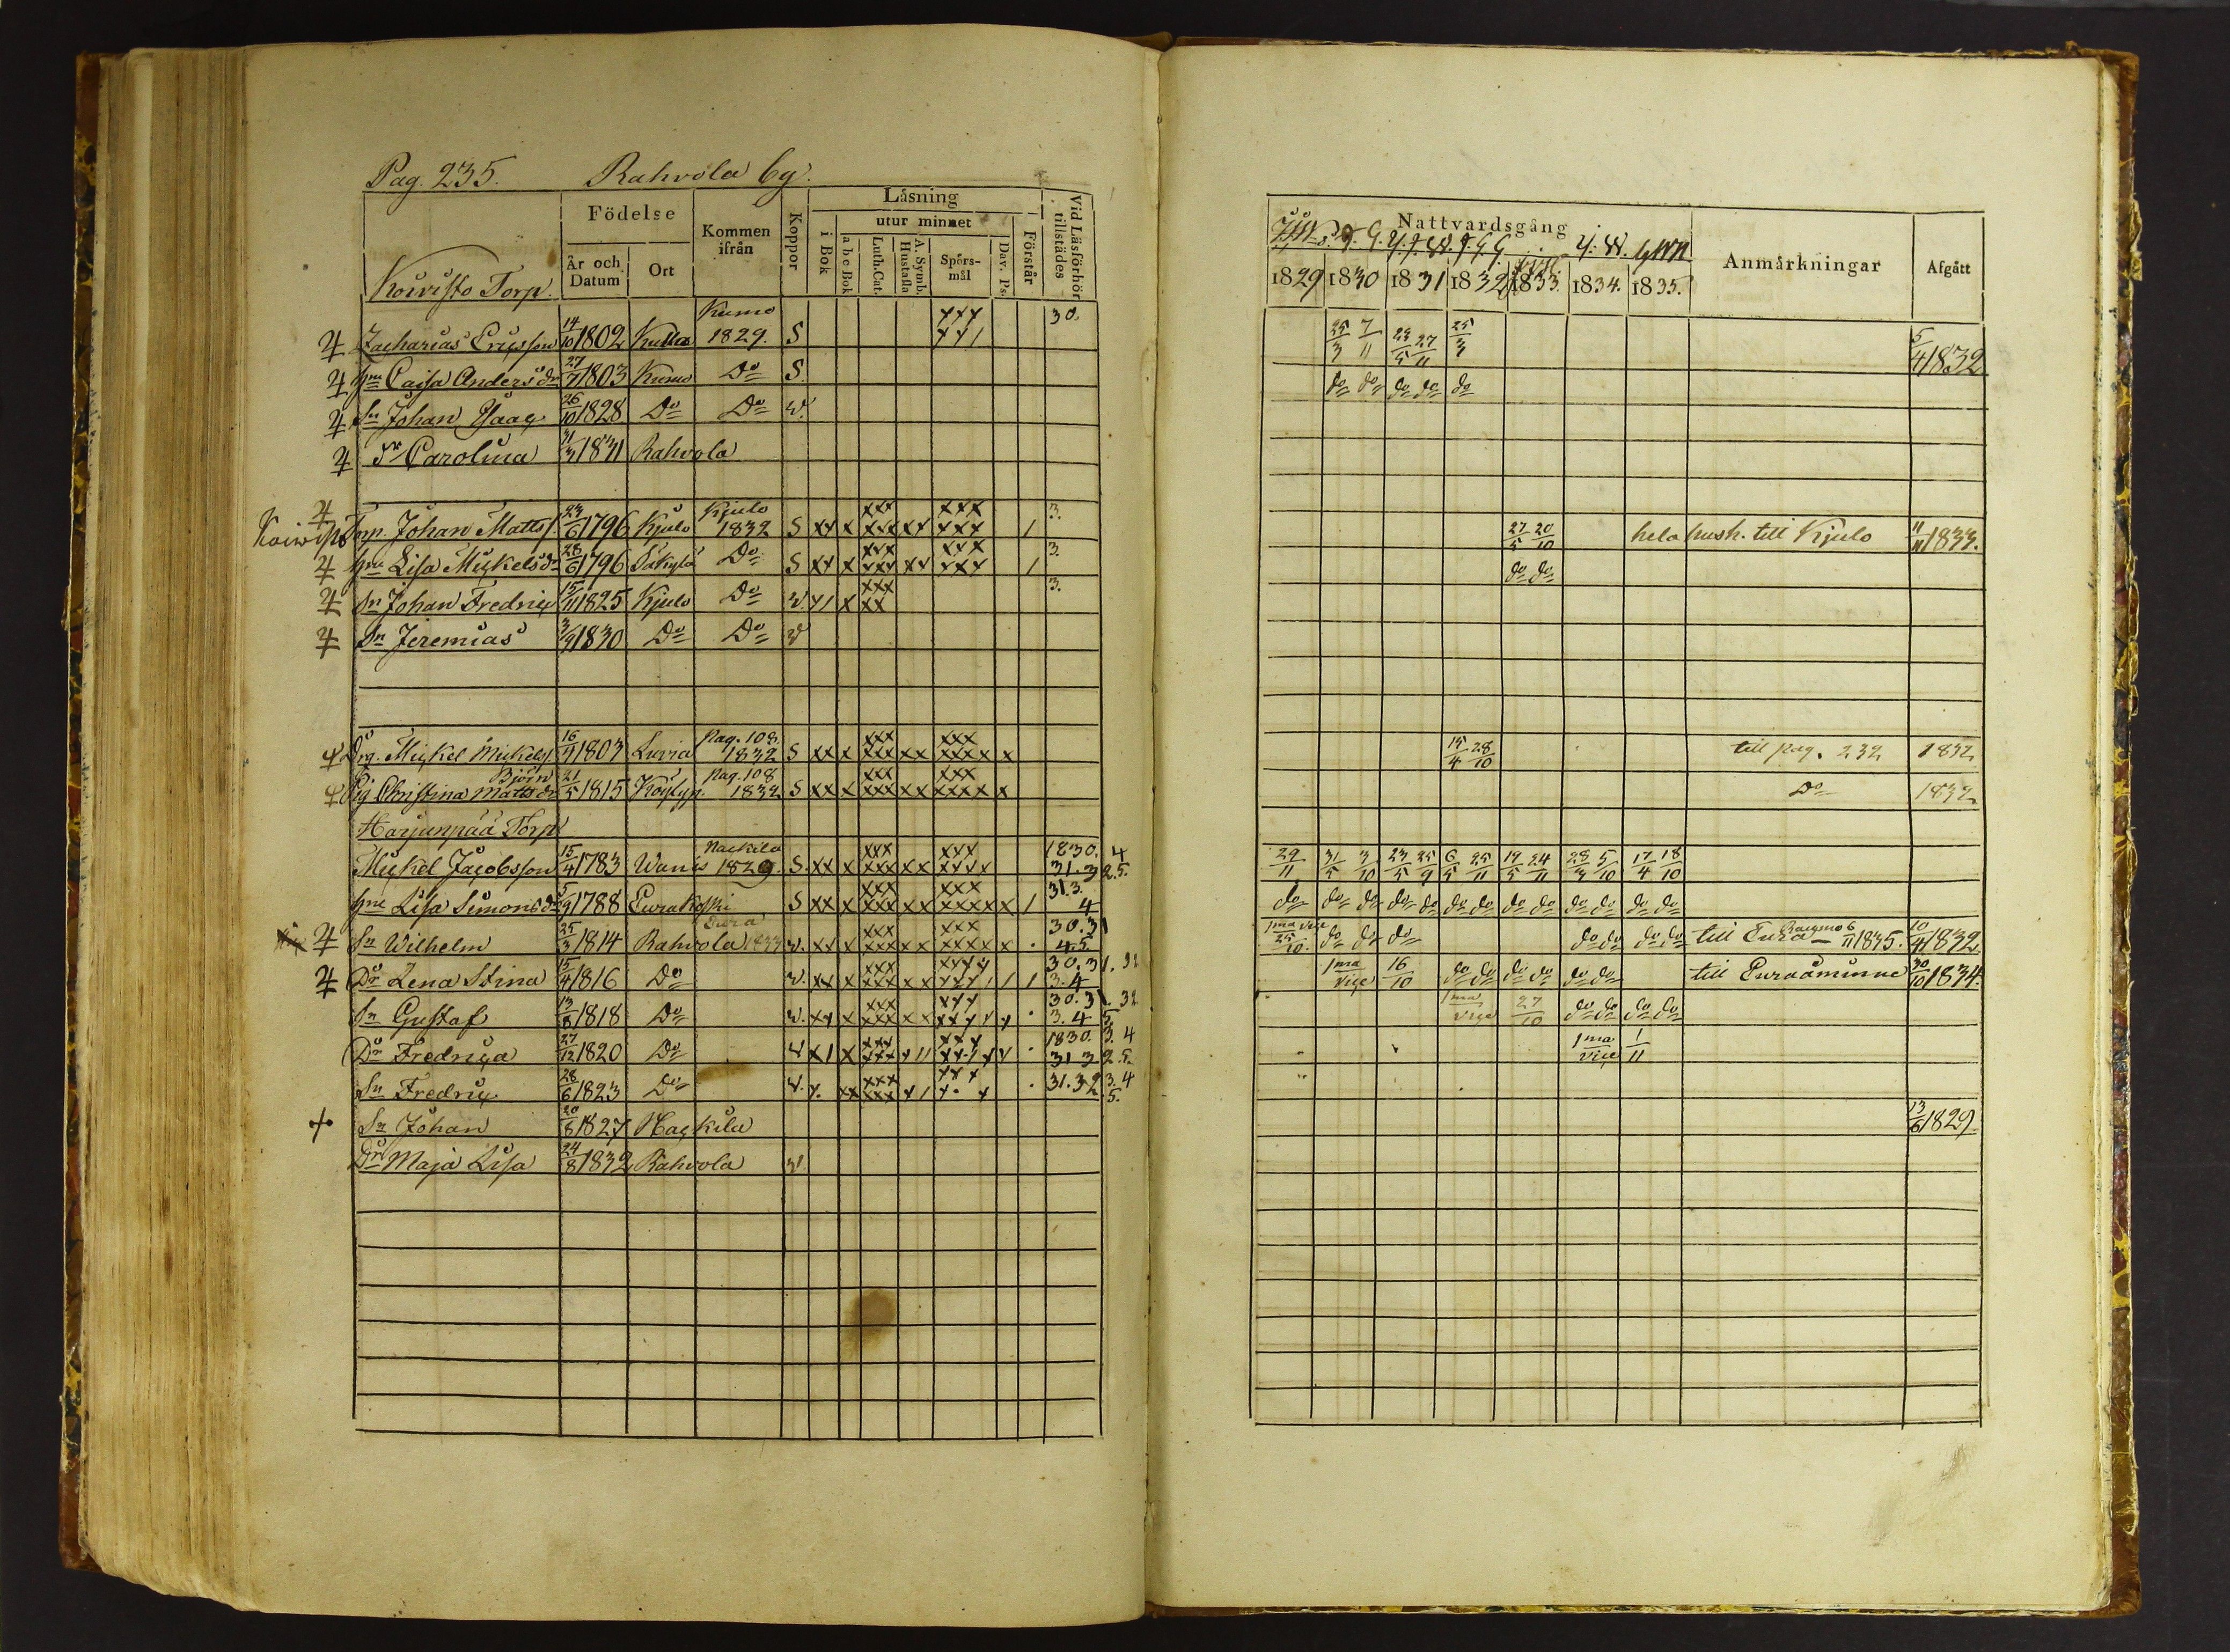 Pag. 235. Rahvola by.
Födelse Kommen ifrån Koppor Läsning Vid Läsförhör tillstädes
utur minnet
Koivisto Torp. År och Datum Ort i Bok a b c Bok Luth. Cat. A. Symb. Hustafla Spörs-mål Dav. Ps. Förstår
Kumo xxx 30.
Zacharias Ericsson 14/10 1802 1829. S xx1
Hu Caisa Andersdr 27/7 1803 Kumo Do S.
Sn Johan Isaac 26/10 1828 Do Do v.
Dr Carolina 31/3 1831 Rahvola
Kjulo xxx xxx 3.
Koivisto Torp. Johan Matts 23/6 1796 Kjulo 1832 S xx x xxx xx xxx 1
Hu Lisa Mickelsdr 28/6 1796 Säkylä Do S xx x xxx xx xxx 1 3.
Sn Johan Fredric 15/11 1825 Kjulo Do v. x1 x xx 3.
Sn Jeremias 3/9 1830 Do Do v
pag. 108 xxx xxx
Drg. Mickel Mickels 16/9 1803 Luvia 1832 S xx x xxx xx xxxx x
Björn pag. 108 xxx xxx
Pig Christina Mattsdr 21/5 1815 Köylyp. 1832 S xx x xxx xx xxxx x
Harjunpää Torp
Nackila xxx xxx 1830. 4
Mickel Jacobsson 15/4 1783 Wanis 1829. S. xx x xxx xx xxxx 31. 32. 5.
Hu Lisa Simonsdr 5/9 1788 Eurakoski S xx x xxx xx xxxx x 1 31. 3. 4
Eura
Sn Wilhelm 25/3 1814 Rahvola 1833 v. xx x xxx xx xxxx x 30. 31 4 5
Dr Lena Stina 15/4 1816 Do v. xx x xxx xx xxx 1 1 1 30. 31. 32 3. 4
Sn Gustaf 13/8 1818 Do v. xx x xxx xx xxxx x 30. 31. 32 3. 4 5
Dr Fredrica 27/12 1820 Do v x1 x xxx x11 xx1x x 1830. 3. 4 31 32. 5.
Sn Fredric 28/6 1823 Do v. x. xx xxx x1 x. x 31. 32 3. 4 5.
Sn Johan 20/8 1827 Hackila
Dr Maja Lisa 24/8 1832 Rahvola v.
Nattvardsgång Anmärkningar Afgått
1829 1830 1831 1832 1833. 1834. 1835.
25/3 7/11 29/5 27/11 25/3 5/4 1832
do do do do do
27/5 20/10 hela hush. till Kjulo 11/11 1833.
do do
15/4 28/10 till pag. 232 1832
Do 1832
29/11 31/5 3/10 23/5 25/9 6/5 25/11 19/5 24/11 28/3 5/10 17/4 18/10
do do do do do do do do do do do do do
1ma vice 25/10. do do do do do do do till Eura 6/11 1835. 10/4 1832
1ma vice 16/10 do do do do do do till Euraåminne 30/10 1834.
1ma vice 27/10 do do do do
1ma vice 1/11
13/6 1829.